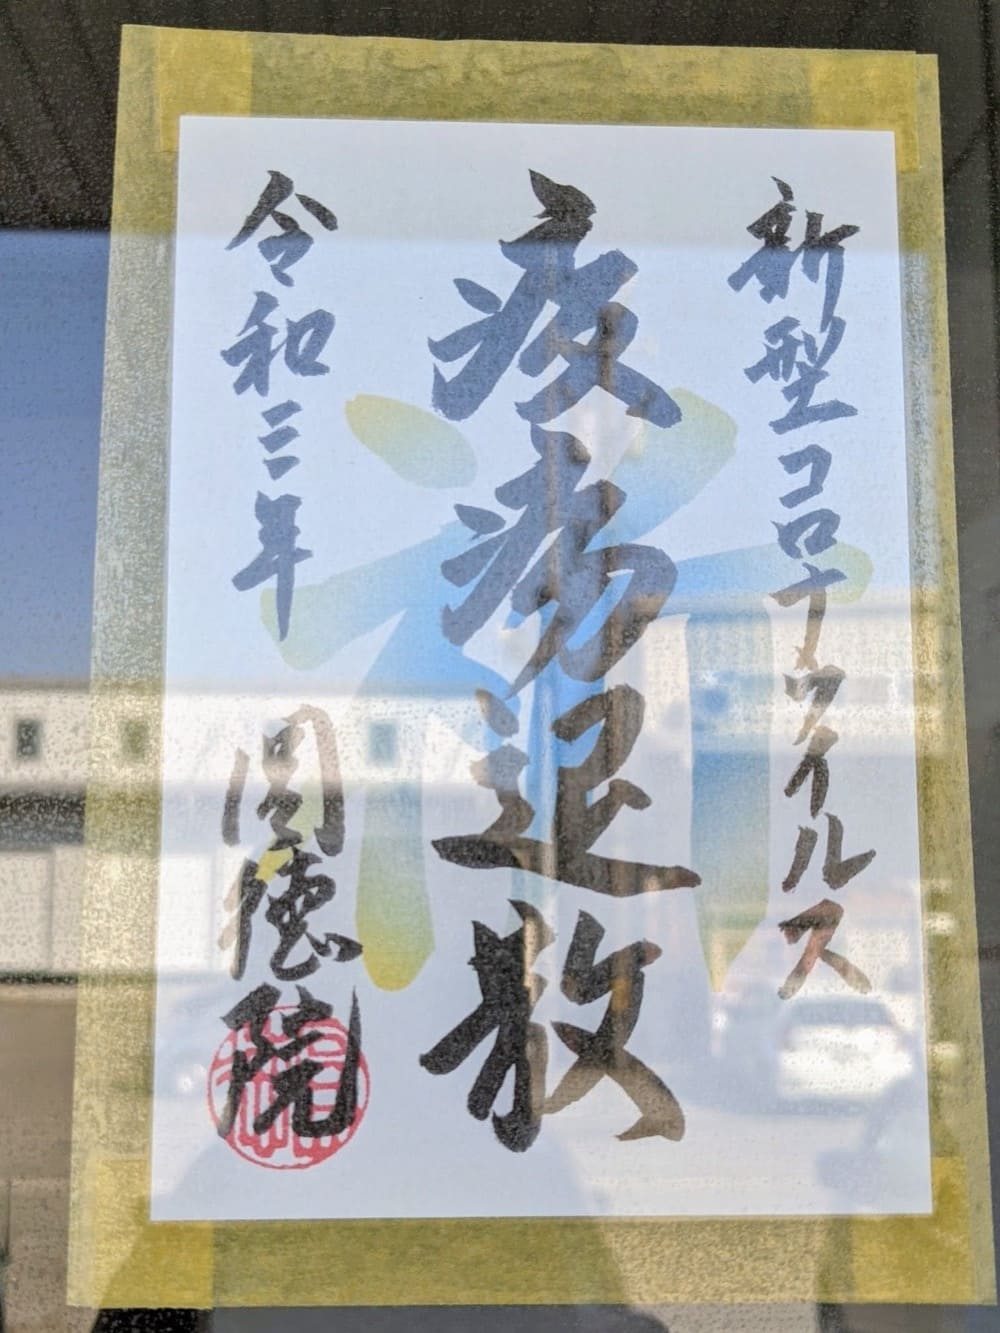 新型コロナウイルス
疫病退散
令和三年
圓徳院
祈